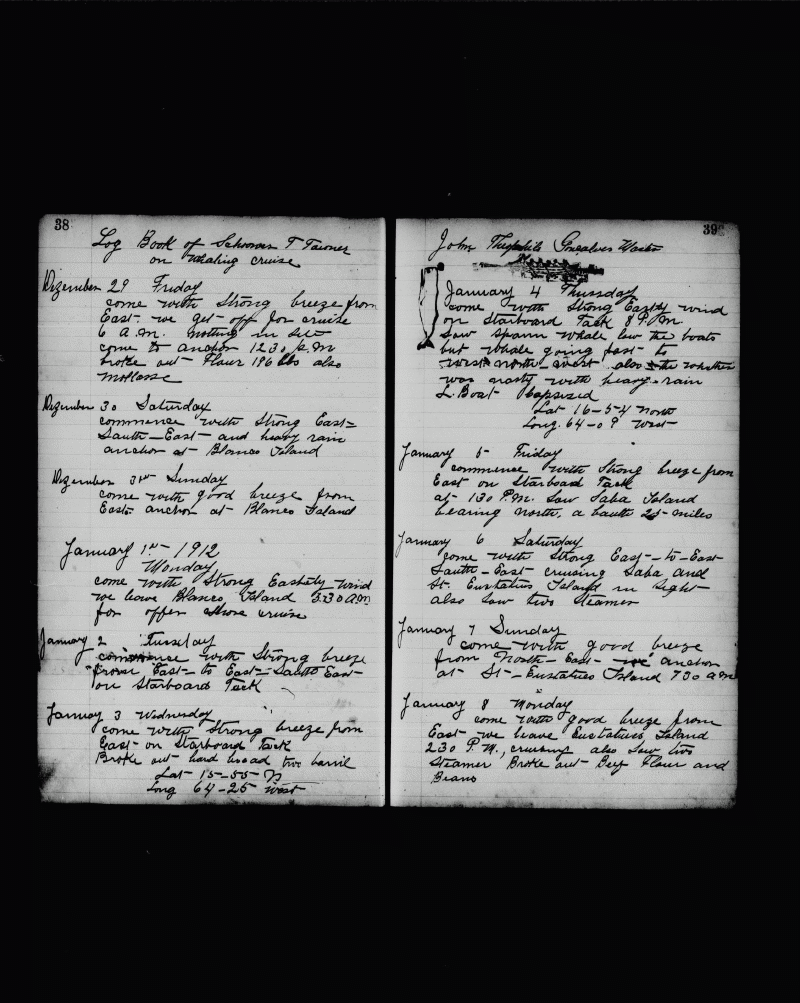 38
Log Book of Schooner T Towner
on Whaling cruise
Dezember 29 Friday
come with Strong breeze from
East we get off for cruise
6 A.M. nothing in Sit
come to anchor 1230 p.m
broke out Flour 196 lbs also
Mollasse
Dezember 30 Saturday
commence with Strong East=
Sauth-East and heavy rain
anchor at Blanco Island
Dezember 31st Sunday
come with good breeze from
East anchor at Blanco Island
January 1st 1912
Monday
come with Strong Easterly wind
we leave Blanco Island 3:30 A.M.
for offen shore cruise
January 2 Tuesday
commence with Strong breeze
from East to East-Sauth East
on Starboard Tack
January 3 Wednesday
come with Strong breeze from
East on Starboard Tack
Broke out hard bread two barril
Lat 15-55 N
Long 64-25 West
39
John Theophile Gonsalves
January 4 Thursday
come with Strong Eastly wind
on Starboard Tack 8 P.M
Saw Sparm Whale low the boats
but Whale going fast to
West north west also the whather
was nasty with heavy rain
L. Boat Capsized
Lat 16-54 North
Long. 64-09 West
January 5 Friday
commence with Strong breeze from
East on Starboad Tack
at 130 P.M. Saw Saba Island
bearing north, a bauth 25 miles
January 6 Saturday
come with Strong East-to-East
Sauth-East cruising Saba and
St. Eustatius Island in Sight
also Saw two Steamer
January 7 Sunday
come with good breeze
from North-East we anchor
at St-Eustatius Island 730 am
January 8 Monday
come with good breeze from
East we leave Eustatius Island
230 P.M., cruising also Saw two
Steamer Broke out Beef Flour and
Beans